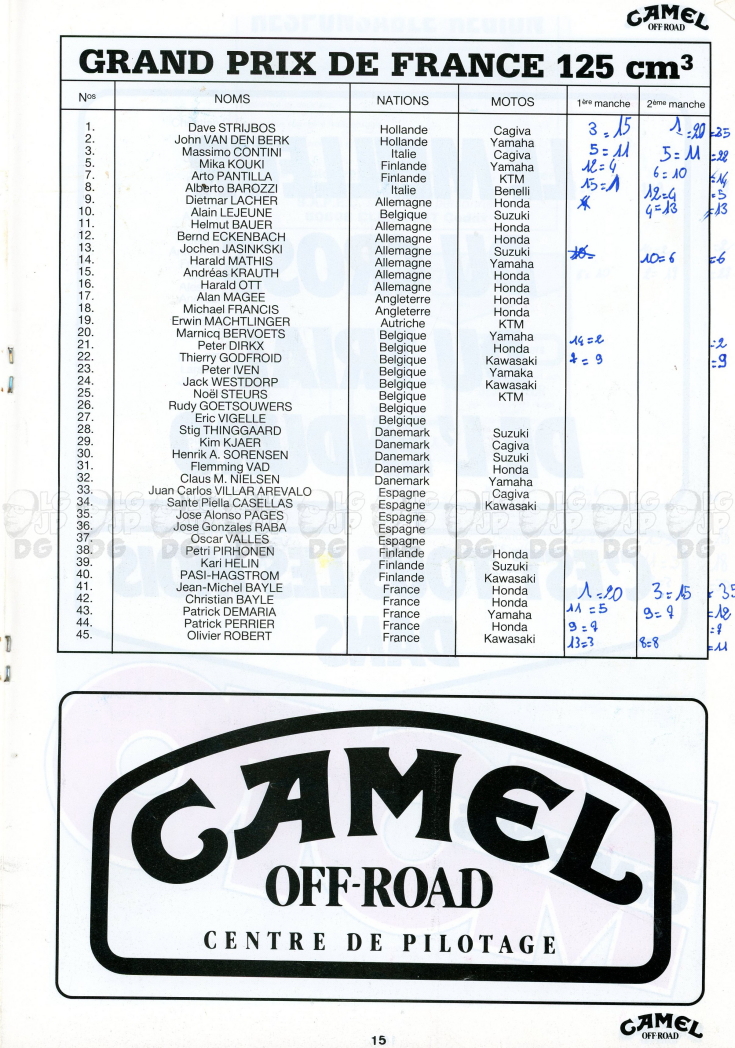 CAMEL
OFF-ROAD
GRAND PRIX DE FRANCE 125 cm³
Nos NOMS NATIONS MOTOS 1ère manche 2ème manche
1. Dave STRIJBOS Hollande Cagiva 3 = 15 1 = 20 = 35
2. John VAN DEN BERK Hollande Yamaha
3. Massimo CONTINI Italie Cagiva 5 = 11 5 = 11 = 22
5. Mika KOUKI Finlande Yamaha 12 = 4 6 = 10 = 14
7. Arto PANTILLA Finlande KTM 15 = 1 12 = 4 = 5
8. Alberto BAROZZI Italie Benelli
9. Dietmar LACHER Allemagne Honda 4 = 13 = 13
10. Alain LEJEUNE Belgique Suzuki
11. Helmut BAUER Allemagne Honda
12. Bernd ECKENBACH Allemagne Honda
13. Jochen JASINKSKI Allemagne Suzuki
14. Harald MATHIS Allemagne Yamaha 10 = 6 = 6
15. Andréas KRAUTH Allemagne Honda
16. Harald OTT Allemagne Honda
17. Alan MAGEE Angleterre Honda
18. Michael FRANCIS Angleterre Honda
19. Erwin MACHTLINGER Autriche KTM
20. Marnicq BERVOETS Belgique Yamaha 14 = 2 = 2
21. Peter DIRKX Belgique Honda
22. Thierry GODFROID Belgique Kawasaki 7 = 9 = 9
23. Peter IVEN Belgique Yamaka
24. Jack WESTDORP Belgique Kawasaki
25. Noël STEURS Belgique KTM
26. Rudy GOETSOUWERS Belgique
27. Eric VIGELLE Belgique
28. Stig THINGGAARD Danemark Suzuki
29. Kim KJAER Danemark Cagiva
30. Henrik A. SORENSEN Danemark Suzuki
31. Flemming VAD Danemark Honda
32. Claus M. NIELSEN Danemark Yamaha
33. Juan Carlos VILLAR AREVALO Espagne Cagiva
34. Sante Piella CASELLAS Espagne Kawasaki
35. Jose Alonso PAGES Espagne
36. Jose Gonzales RABA Espagne
37. Oscar VALLES Espagne
38. Petri PIRHONEN Finlande Honda
39. Kari HELIN Finlande Suzuki
40. PASI-HAGSTROM Finlande Kawasaki
41. Jean-Michel BAYLE France Honda 1 = 20 3 = 15 = 35
42. Christian BAYLE France Honda
43. Patrick DEMARIA France Yamaha 11 = 5 9 = 7 = 12
44. Patrick PERRIER France Honda 9 = 7 = 7
45. Olivier ROBERT France Kawasaki 13 = 3 8 = 8 = 11
CAMEL
OFF-ROAD
CENTRE DE PILOTAGE
15
CAMEL
OFF-ROAD